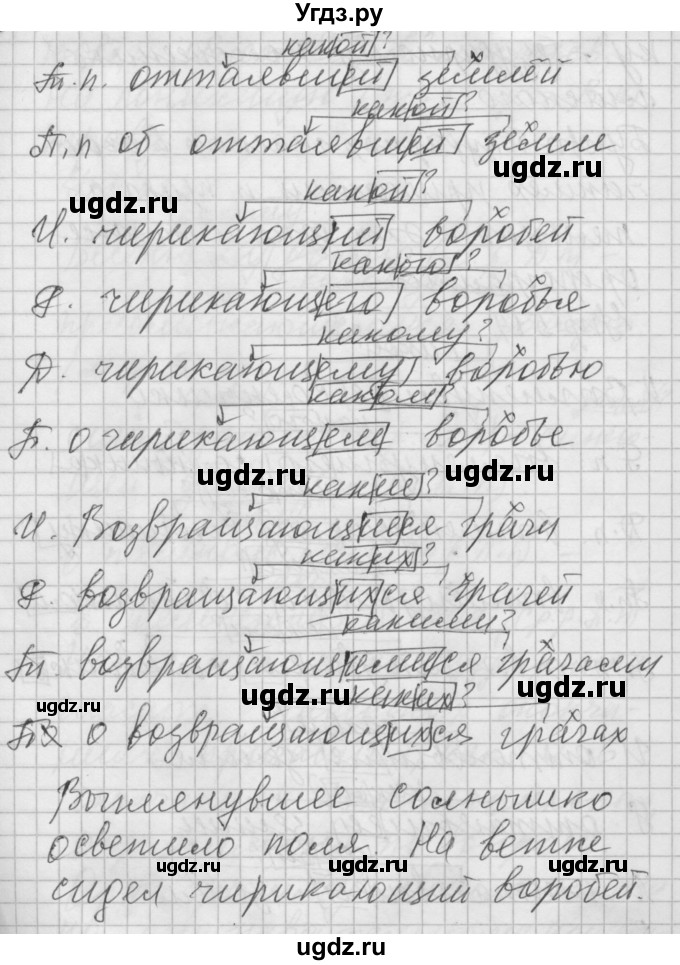 Угдз.ру
какой?
Тп.п. оттаявшей землёй
какой?
П.п об оттаявшей земле
ugdz.ru ugdz.ru
какой?
И. чирикающий воробей
какого?
Р. чирикающего воробья
какому?
Д. чирикающему воробью
каком?
П. о чирикающем воробье
ugdz.ru ugdz.ru
какие?
И. Возвращающиеся грачи
каких?
Р. возвращающихся грачей
какими?
Тп. возвращающимися грачами
ugdz.ru ugdz.ru ugdz.ru
каких?
о возвращающихся грачах
Выглянувшее солнышко
осветило поля. На ветке
ugdz.ru ugdz.ru
сидел чирикающий воробей.
ugdz.ru